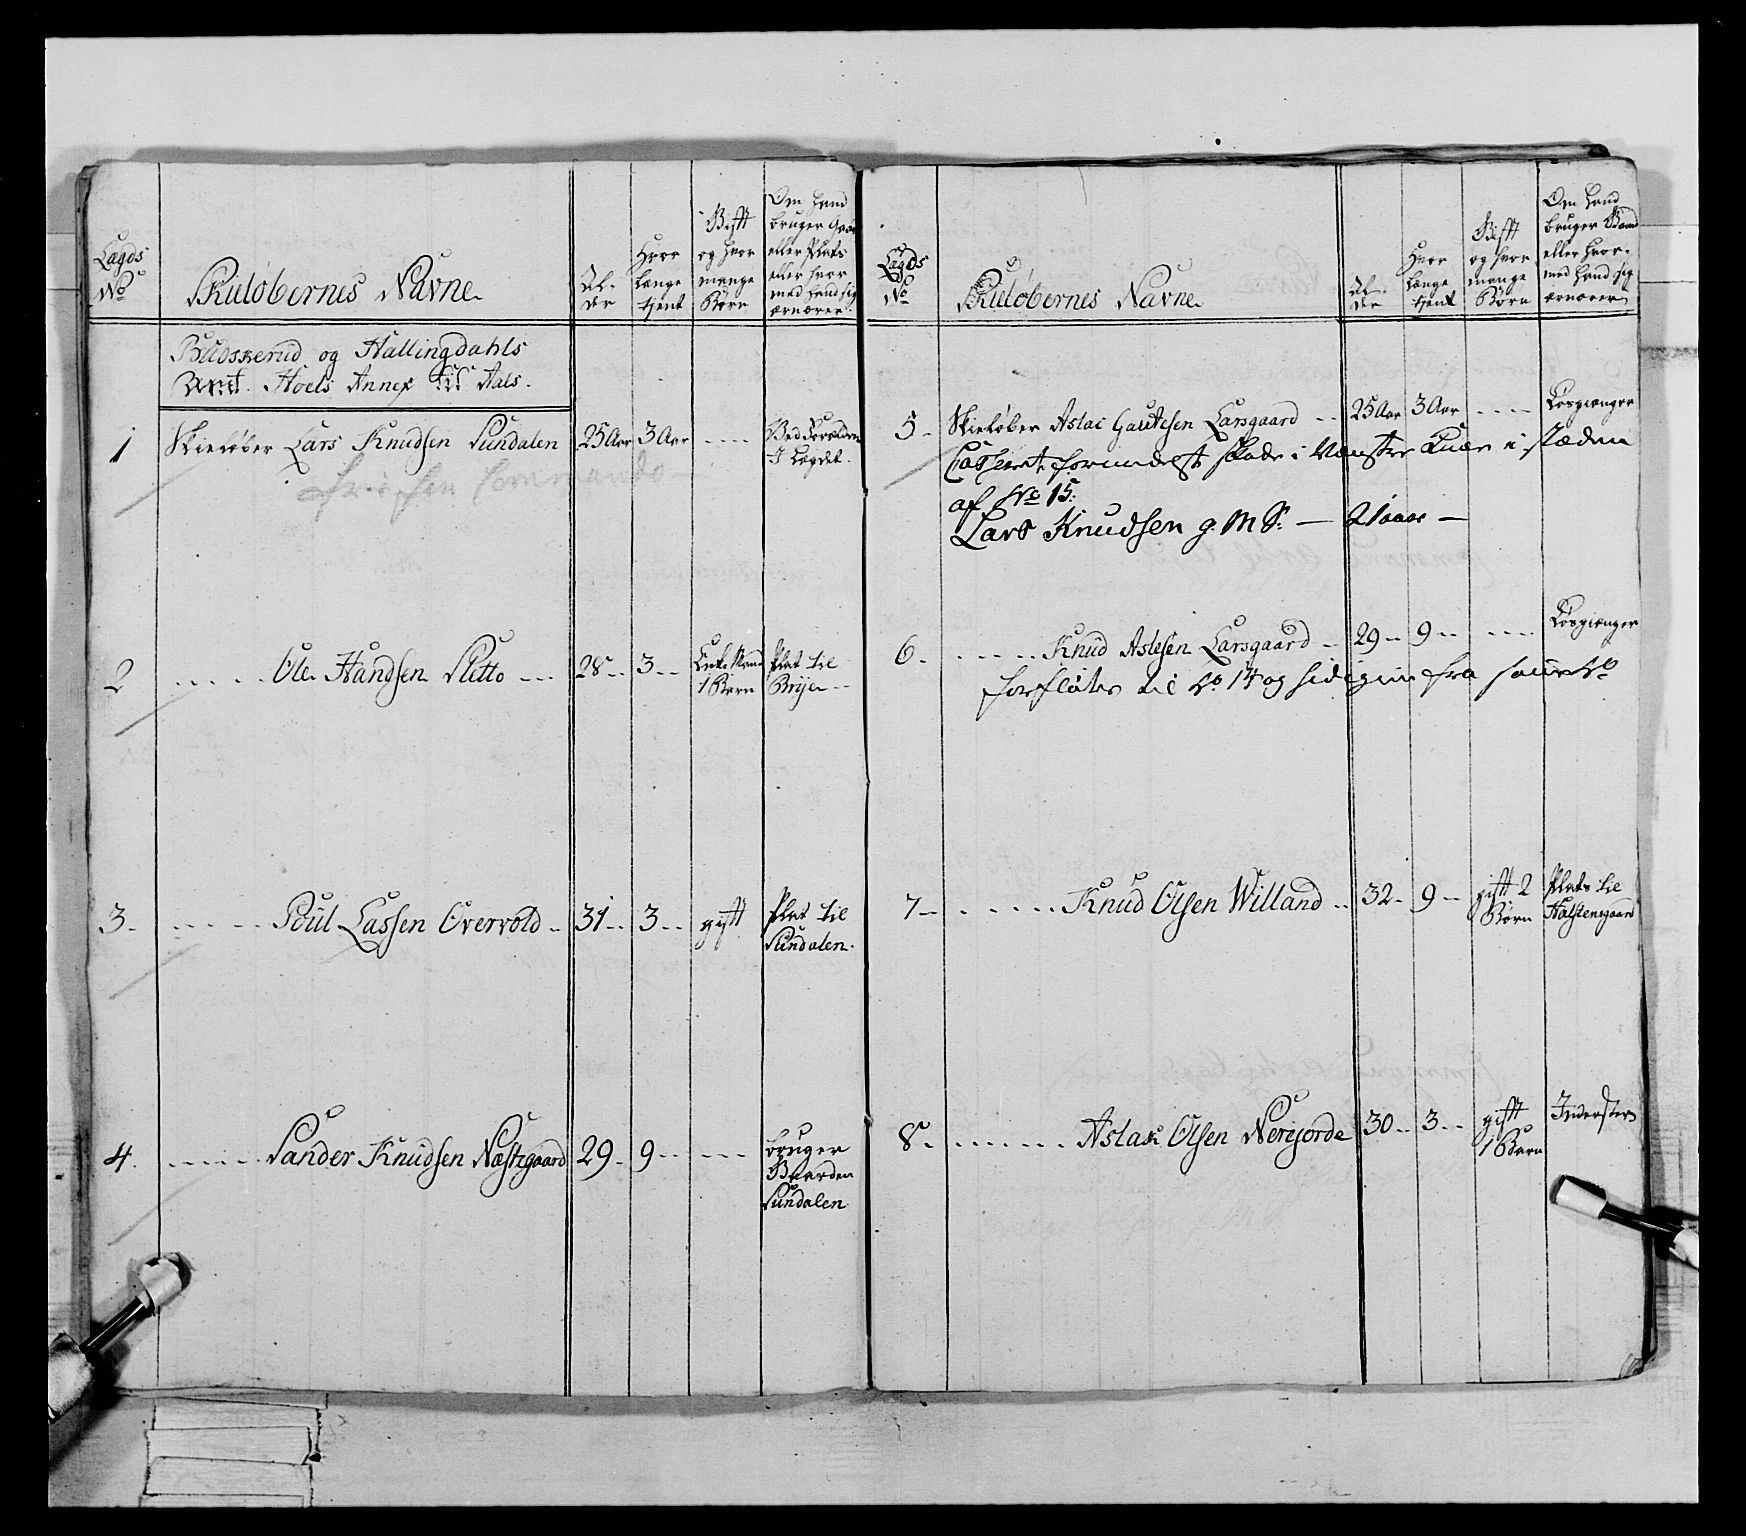 Lægds No
Skieløbernes Navne
Al-der
Hvor længe tjent
Gift og hvor mange Børn
Om hand bruger Gaard eller Plats eller hvor med hand sig ærnærer
Budskerud og Hallingdahls
Amt. Hoels Annex til Aals.
1 Skieløber Lars Knudsen Sundalen 25 Aar 3 Aar ---- Ved Forældrene I Lægdet.
Commando
2 ----- Ole Handsen Sletto --- 28-- 3-- Enke Mand 1 Barn Plat til Brÿe--
3- ----- Poul Lassen Overvold - 31-- 3-- gift Plat til Sundalen.
4. ----- Sander Knudsen Næstegaard 29- 9-- --- bruger Gaarden Sundalen
Lægds No
Skieløbernes Navne
Al-der
Hvor længe tjent
Gift og hvor mange Børn
Om hand bruger Gaard eller hvor-med hand sig ærnærer
5- Skieløber Aslac Gautesen Larsgaard -- 25 Aar 3 Aar ---- Løsgiænger
Casseret formedelst skade i Venstre Knæe i stæden
af No 15:
Lars Knudsen g. M S: — 21 aar —
6. ----- Knud Aslesen Larsgaard - 29-- 9-- ---- Løsgiænger
forfløttes til No 14 og fra No
7-- ----- Knud Olsen Willand -- 32- 9-- gift 2 Børn Plats til Halstensgaard
8- ------- Aslak Olsen Nerjorde 30-- 3-- gift 1 Barn Inderster